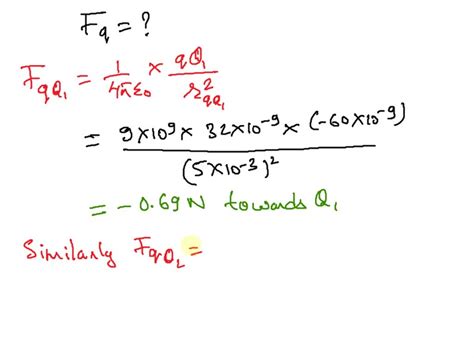 F_q = ?
F_qQ₁ = 1/4πε₀ × qQ₁/r²_qQ₁
= 9×10⁹ × 32×10⁻⁹ × (-60×10⁻⁹)/(5×10⁻³)²
= -0.69N towards Q₁
Similarly F_qQ₂ =